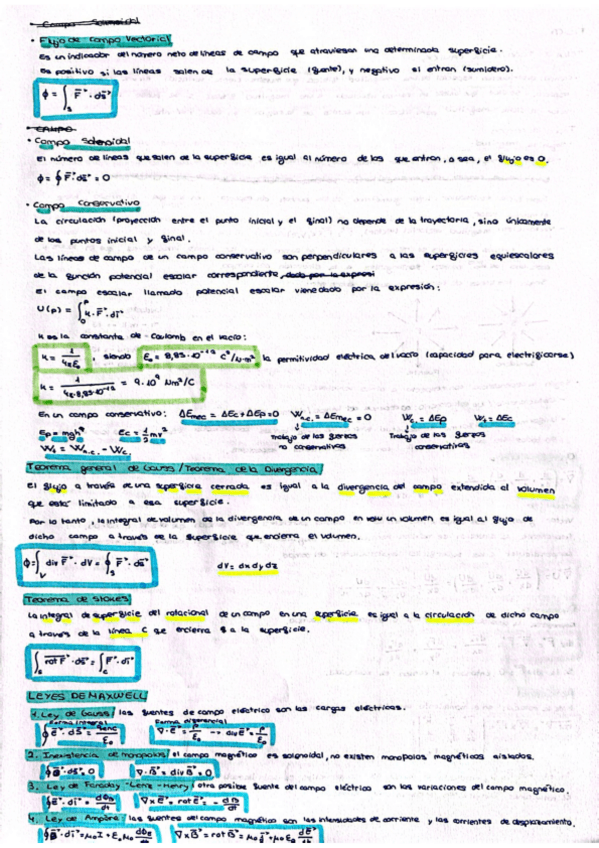 • Flujo de campo vectorial
Es un indicador del número neto de líneas de campo que atraviesan una determinada superficie.
Es positivo si las líneas salen de la superficie (fuente), y negativo si entran (sumidero).
ϕ = ∫s F⃗ · ds⃗
• Campo Solenoidal
El número de líneas que salen de la superficie es igual al número de las que entran, o sea, el flujo es 0.
ϕ = ∮ F⃗ · ds⃗ = 0
• Campo Conservativo
La circulación (proyección entre el punto inicial y el final) no depende de la trayectoria, sino únicamente
de los puntos inicial y final.
Las líneas de campo de un campo conservativo son perpendiculares a las superficies equiescalares
de la función potencial escalar correspondiente, dada por la expresi
El campo escalar llamado potencial escalar viene dado por la expresión:
U(p) = ∫ k · F⃗ · dl⃗
K es la constante de Coulomb en el vacío:
K = 1/4πε₀ , siendo ε₀ = 8,85·10⁻¹² C²/N·m² la permitividad eléctrica del vacío (capacidad para electrificarse)
K = 1/4π·8,85·10⁻¹² = 9·10⁹ Nm²/C
En un campo conservativo: ΔEmec = ΔEc + ΔEp = 0 Wn.c. = ΔEmec = 0 Wc = ΔEp Wt = ΔEc
Ep = mgh Ec = 1/2 mv² Trabajo de las fuerzas no conservativas Trabajo de las fuerzas conservativas
Wt = Wn.c. - Wc
Teorema general de Gauss / Teorema de la Divergencia
El flujo a través de una superficie cerrada es igual a la divergencia del campo extendida al volumen
que está limitado a esa superficie.
Por lo tanto, la integral de volumen de la divergencia de un campo en un volumen es igual al flujo de
dicho campo a través de la superficie que encierra el volumen.
ϕ = ∫v div F⃗ · dV = ∮s F⃗ · ds⃗ dV = dx dy dz
Teorema de Stokes
La integral de superficie del rotacional de un campo en una superficie es igual a la circulación de dicho campo
a través de la línea C que encierra a la superficie.
∫s rot F⃗ · ds⃗ = ∫c F⃗ · dl⃗
LEYES DE MAXWELL
1. Ley de Gauss / las fuentes de campo eléctrico son las cargas eléctricas.
Forma integral Forma diferencial
∮ E⃗ · ds⃗ = qenc/ε₀ ∇ · E⃗ = ρ/ε₀ → div E⃗ = ρ/ε₀
2. Inexistencia de monopolos / el campo magnético es solenoidal, no existen monopolos magnéticos aislados.
∮ B⃗ · ds⃗ = 0 ∇ · B⃗ = div B⃗ = 0
3. Ley de Faraday "Lenz-Henry" / otra posible fuente del campo eléctrico son las variaciones del campo magnético.
∮ E⃗ · dl⃗ = dϕB/dt ∇ × E⃗ = rot E⃗ = dB⃗/dt
4. Ley de Ampère / las fuentes del campo magnético son las intensidades de corriente y las corrientes de desplazamiento.
∮ B⃗ · dl⃗ = μ₀I + ε₀μ₀ dϕE/dt ∇ × B⃗ = rot B⃗ = μ₀j⃗ + μ₀ε₀ dE⃗/dt